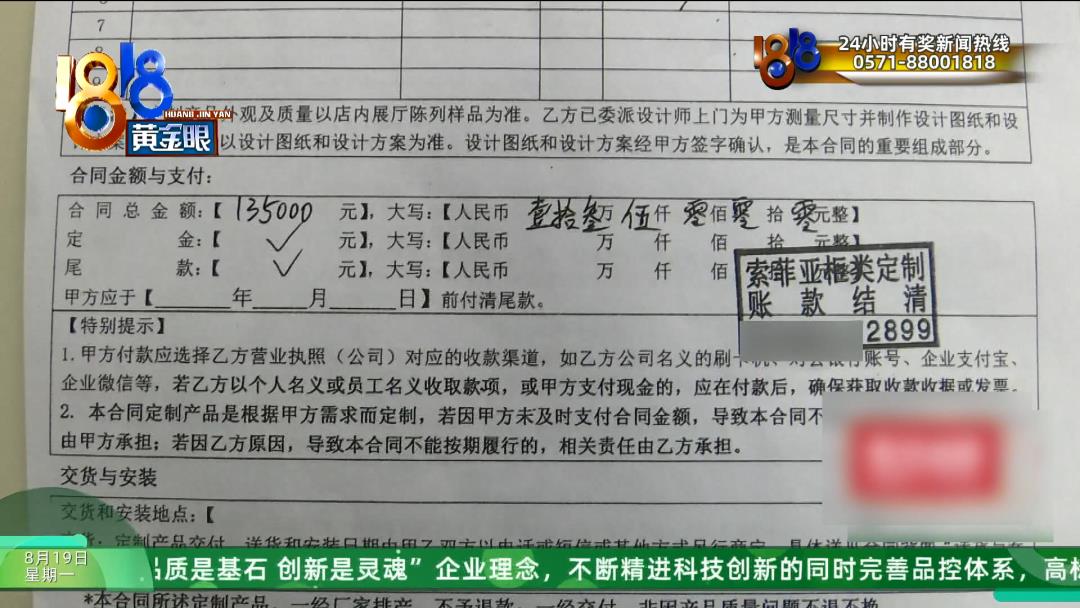 7
8
9
1818
HUANG JIN YAN
黄金眼
1818
24小时有奖新闻热线
0571-88001818
产品外观及质量以店内展厅陈列样品为准。乙方已委派设计师上门为甲方测量尺寸并制作设计图纸和设
以设计图纸和设计方案为准。设计图纸和设计方案经甲方签字确认，是本合同的重要组成部分。
合同金额与支付：
合同总金额：【 135000 元】，大写：【人民币 壹拾叁万 伍仟 零佰 零拾 零元整】
定 金：【 ✓ 元】，大写：【人民币 万 仟 佰 拾 元整】
尾 款：【 ✓ 元】，大写：【人民币 万 仟 佰
甲方应于【 年 月 日】前付清尾款。
索菲亚柜类定制
账款结清
2899
【特别提示】
1.甲方付款应选择乙方营业执照（公司）对应的收款渠道，如乙方公司名义的刷卡机、对公银行账号、企业支付宝、
企业微信等，若乙方以个人名义或员工名义收取款项，或甲方支付现金的，应在付款后，确保获取收款收据或发票。
2. 本合同定制产品是根据甲方需求而定制，若因甲方未及时支付合同金额，导致本合同不
由甲方承担；若因乙方原因，导致本合同不能按期履行的，相关责任由乙方承担。
交货与安装
交货和安装地点：【
定制产品交付、送货和安装日期由甲乙双方以电话或短信或其他方式另行商定
8月19日
星期一
品质是基石 创新是灵魂”企业理念，不断精进科技创新的同时完善品控体系，高
*本合同所述定制产品，一经厂家排产，不予退款，一经交付，非因产品质量问题不退不换